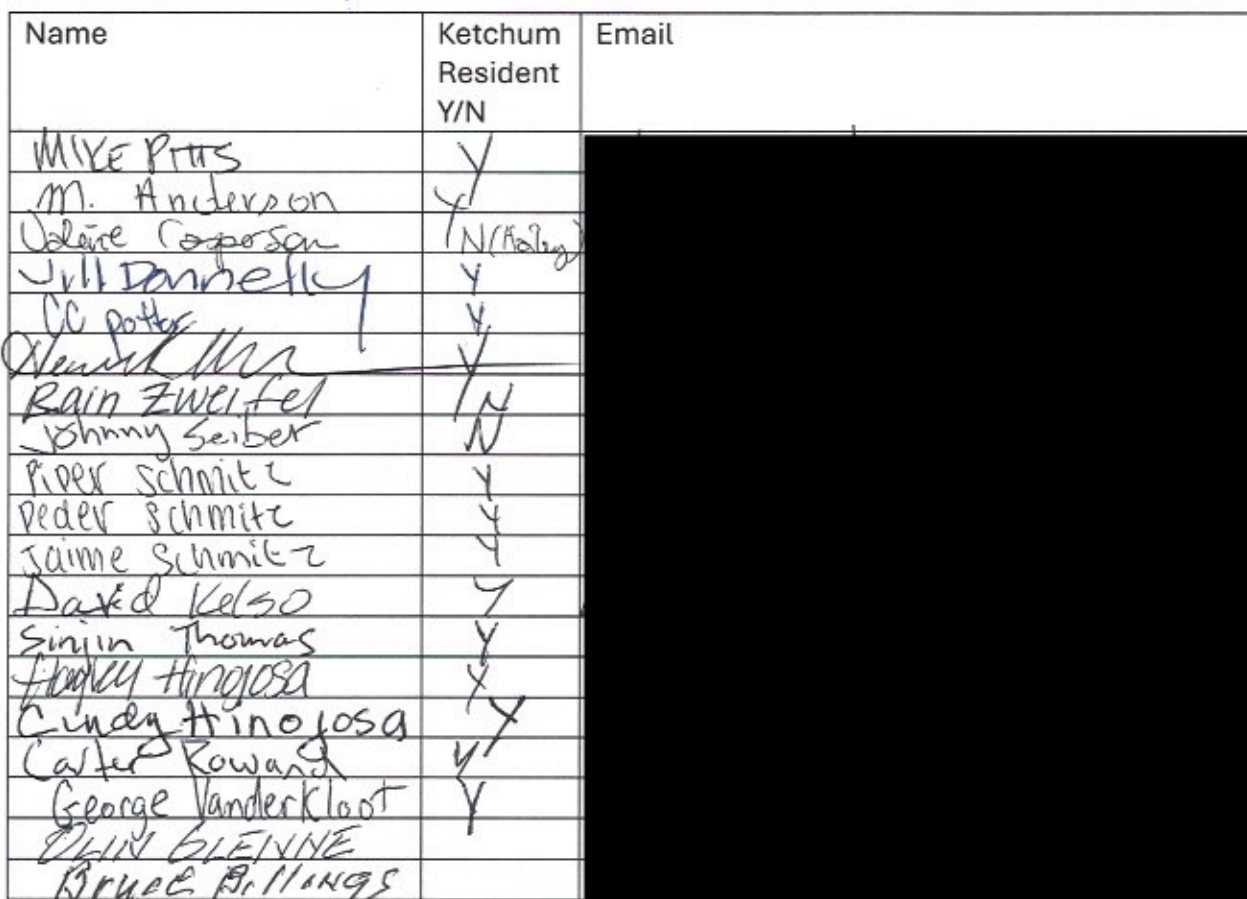 Name Ketchum Resident Y/N Email
MIKE PITTS Y
M. Anderson Y
Valerie Casperson N (Hailey)
Jill Donnelly Y
CC potter Y
Y
Rain Zweifel N
Johnny Seiber N
Piper Schmitz Y
Peder Schmitz Y
Jaime Schmitz Y
David Kelso Y
Sinjin Thomas Y
Hayley Hinojosa Y
Cindy Hinojosa Y
Carter Rowand Y
George VanderKloot Y
OLIN GLENNE
Bruce Billings